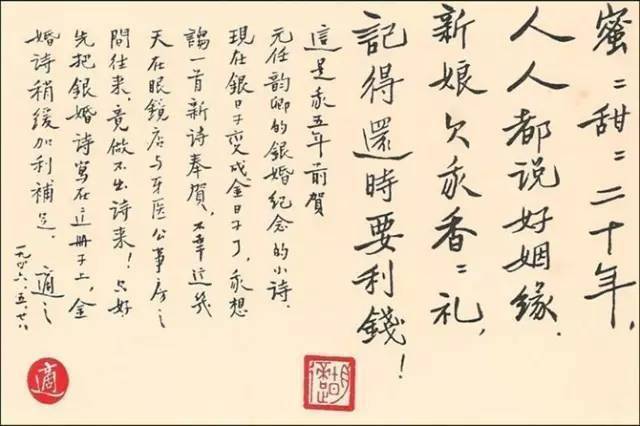 蜜〻甜〻二十年，
人人都說好姻緣.
新娘欠我香〻礼，
記得還時要利錢！
這是我五年前賀
元任韵卿的銀婚紀念的小詩.
現在銀日子變成金日子了，我想
謅一首新詩奉賀，不幸這幾
天在眼鏡店与牙医公事房之
間往來，竟做不出詩來！只好
先把銀婚詩寫在这册子上，金
婚詩稍緩加利補足. 適之
一九四六.五.廿八
適